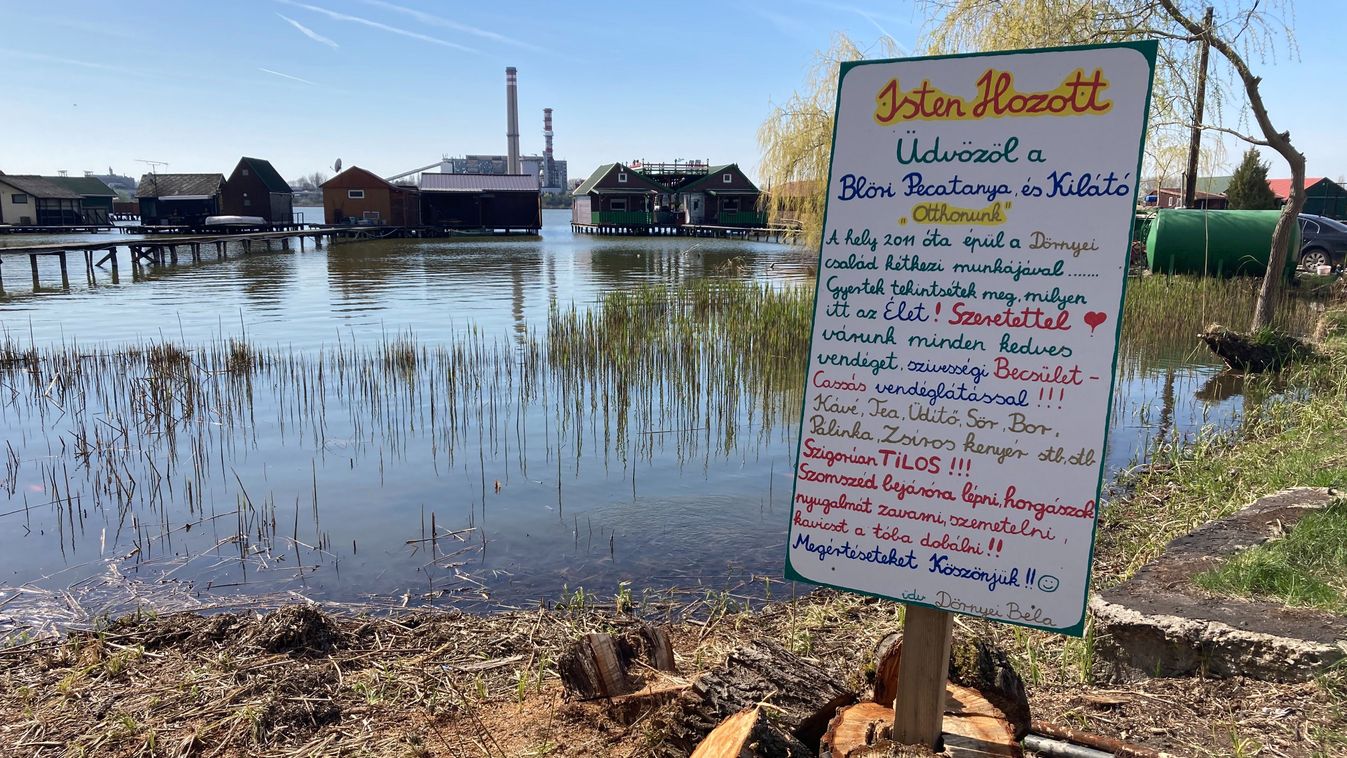 Isten Hozott
Üdvözöl a
Blöri Pecatanya, és Kilátó
„Otthonunk"
A hely 2011 óta épül a Dörnyei
család kétkezi munkájával.......
Gyertek tekintsétek meg, milyen
itt az Élet! Szeretettel
várunk minden kedves
vendéget, szívességi Becsület-
Cassás vendéglátással !!!
Kávé, Tea, Üdítő, Sör, Bor,
Pálinka, Zsíros kenyér stb, stb
Szigorúan TiLOS !!!
Szomszéd bejáróra lépni, horgászok
nyugalmát zavarni, szemetelni,
kavicsot a tóba dobálni !!
Megértéseteket Köszönjük !!
idv Dörnyei Béla